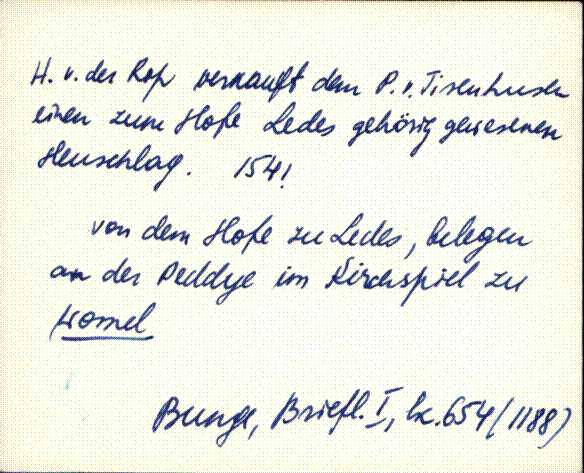 H. v. der Rop verkauft dem P. v. Tisenhusen
einen zum Hofe Ledes gehörig gewesenen
Heuschlag. 1541
von dem Hofe zu Ledes, belegen
an der Peddye im Kirchspiel zu
Bunge, Briefl. I, lk. 654 (1188)